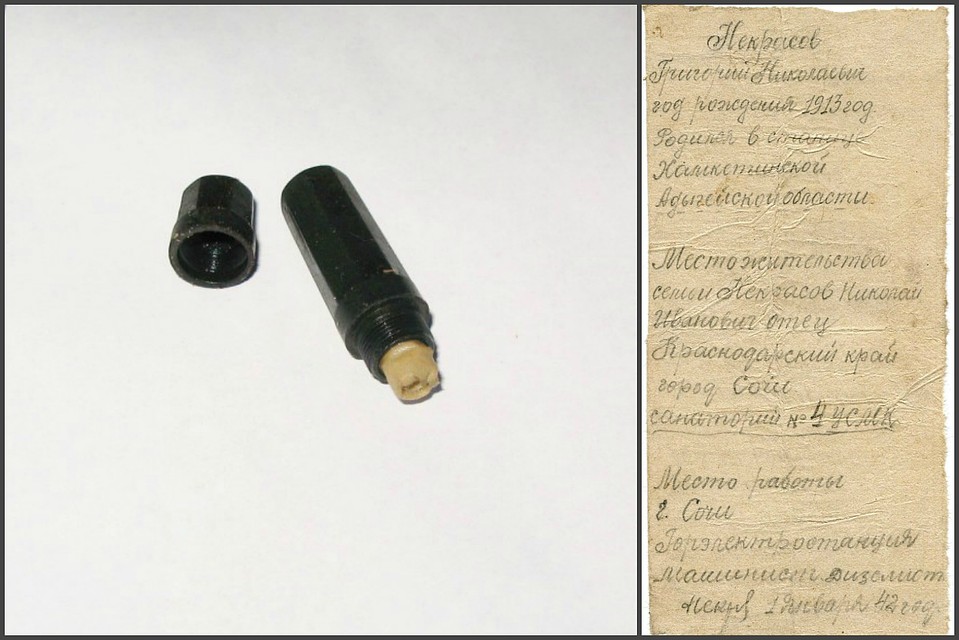 Некрасов
Григорий Николаевич
год рождения 1913 год.
Родился в станиц
Хамкетинской
Адыгейской области
Место жительства
семьи Некрасов Николай
Иванович отец
Краснодарский край
город Сочи
санаторий № 4
Место работы
г. Сочи
Горэлектростанция
Машинист дизелист
Некр 1 Января 42 год.